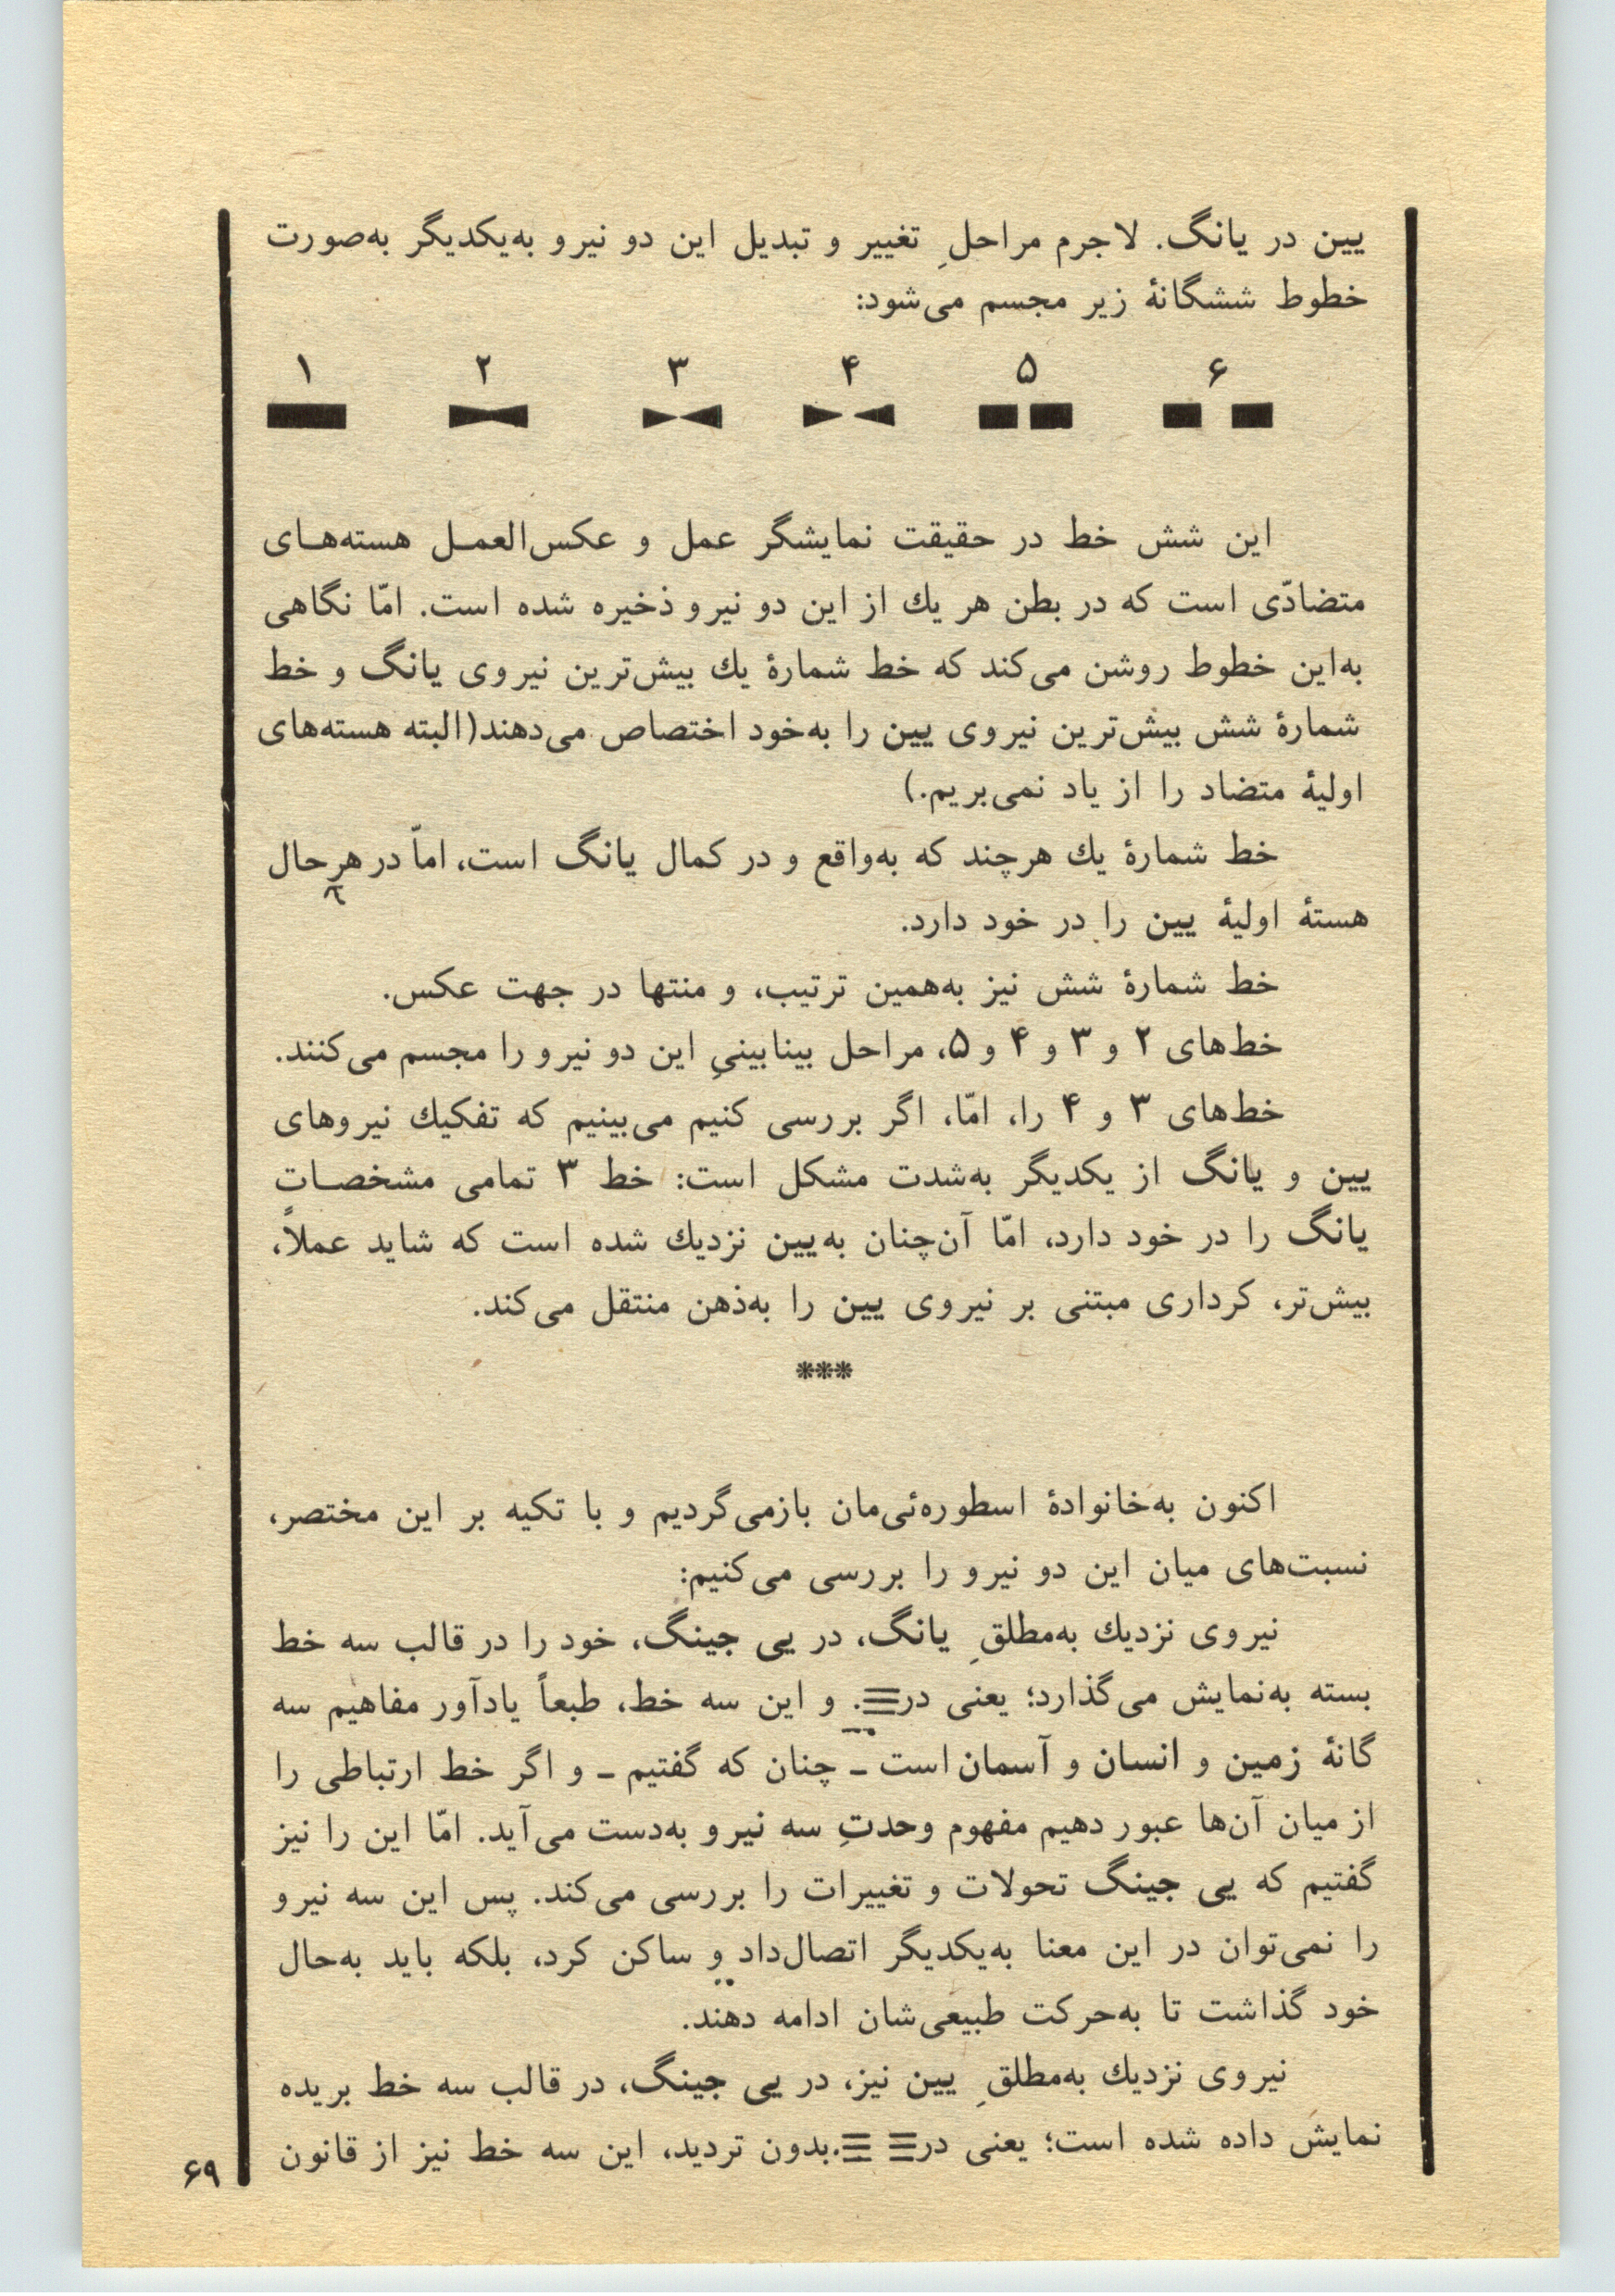 یین در یانگ. لاجرم مراحلِ تغییر و تبدیل این دو نیرو به‌یکدیگر به‌صورت
خطوط ششگانهٔ زیر مجسم می‌شود:
۱ ۲ ۳ ۴ ۵ ۶
این شش خط در حقیقت نمایشگر عمل و عکس‌العمـل هسته‌هـای
متضادّی است که در بطن هر یك از این دو نیرو ذخیره شده است. امّا نگاهی
به‌این خطوط روشن می‌کند که خط شمارهٔ یك بیش‌ترین نیروی یانگ و خط
شمارهٔ شش بیش‌ترین نیروی یین را به‌خود اختصاص می‌دهند(البته هسته‌های
اولیهٔ متضاد را از یاد نمی‌بریم.)
خط شمارهٔ یك هرچند که به‌واقع و در کمال یانگ است، امّا در هرحال
هستهٔ اولیهٔ یین را در خود دارد.
خط شمارهٔ شش نیز به‌همین ترتیب، و منتها در جهت عکس.
خط‌های ۲ و ۳ و ۴ و ۵، مراحل بینابینیِ این دو نیرو را مجسم می‌کنند.
خط‌های ۳ و ۴ را، امّا، اگر بررسی کنیم می‌بینیم که تفکیك نیروهای
یین و یانگ از یکدیگر به‌شدت مشکل است: خط ۳ تمامی مشخصـات
یانگ را در خود دارد، امّا آن‌چنان به‌یین نزدیك شده است که شاید عملاً،
بیش‌تر، کرداری مبتنی بر نیروی یین را به‌ذهن منتقل می‌کند.
***
اکنون به‌خانوادهٔ اسطوره‌ئی‌مان بازمی‌گردیم و با تکیه بر این مختصر،
نسبت‌های میان این دو نیرو را بررسی می‌کنیم:
نیروی نزدیك به‌مطلقِ یانگ، در یی جینگ، خود را در قالب سه خط
بسته به‌نمایش می‌گذارد؛ یعنی در☰. و این سه خط، طبعاً یادآور مفاهیم سه
گانهٔ زمین و انسان و آسمان است ـ چنان که گفتیم ـ و اگر خط ارتباطی را
از میان آن‌ها عبور دهیم مفهوم وحدتِ سه نیرو به‌دست می‌آید. امّا این را نیز
گفتیم که یی جینگ تحولات و تغییرات را بررسی می‌کند. پس این سه نیرو
را نمی‌توان در این معنا به‌یکدیگر اتصال‌داد و ساکن کرد، بلکه باید به‌حال
خود گذاشت تا به‌حرکت طبیعی‌شان ادامه دهند.
نیروی نزدیك به‌مطلقِ یین نیز، در یی جینگ، در قالب سه خط بریده
نمایش داده شده است؛ یعنی در☷.بدون تردید، این سه خط نیز از قانون
۶۹